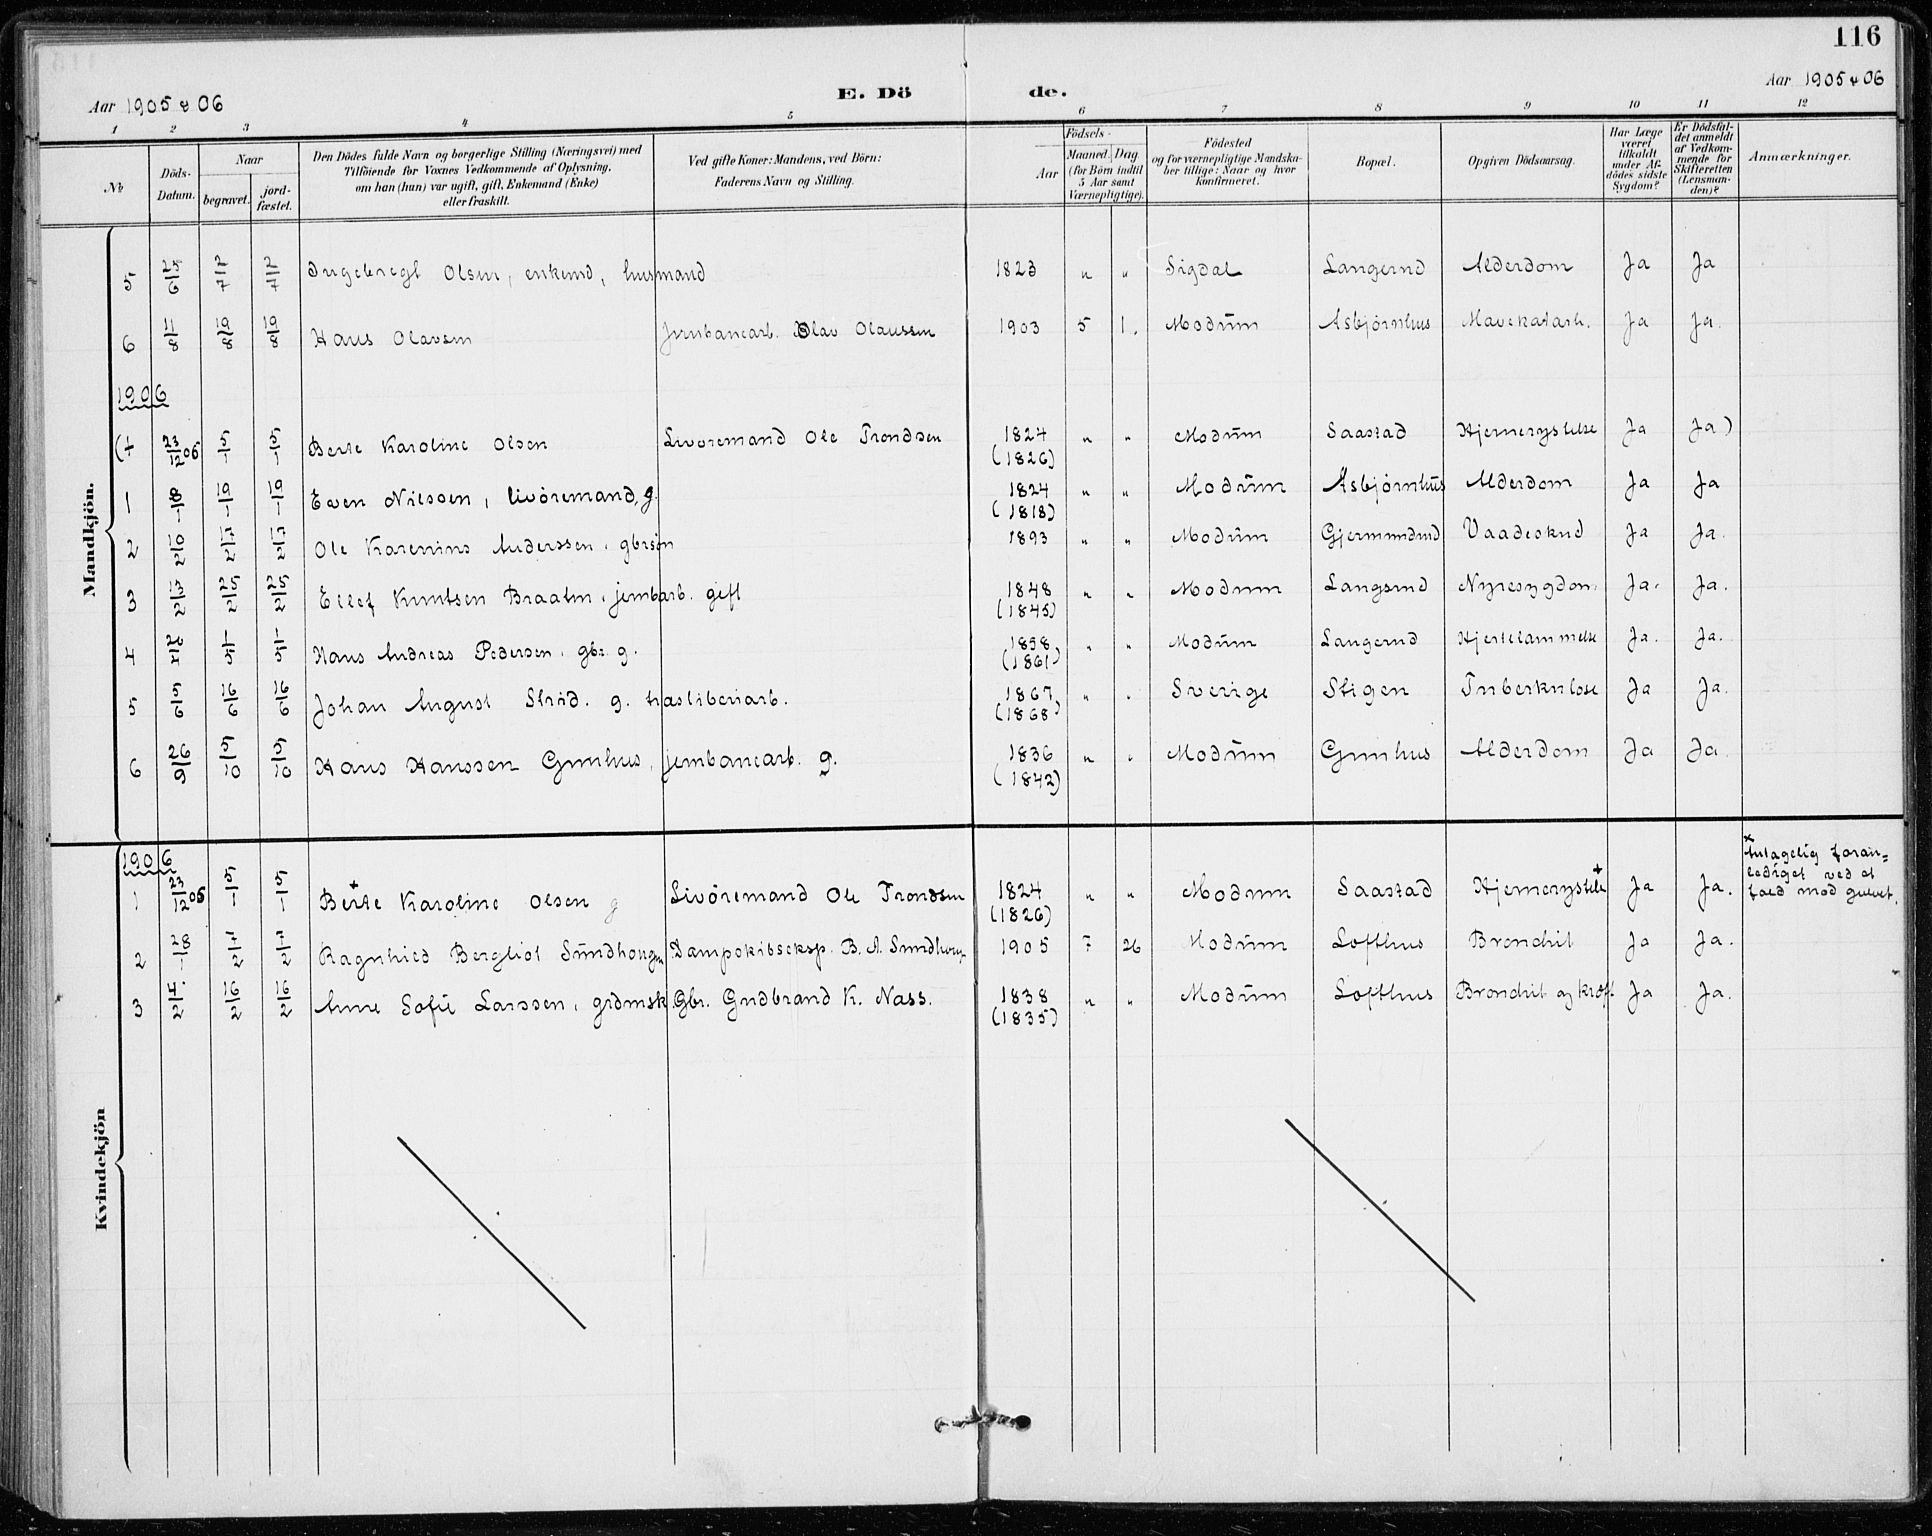 116
Aar 1905 & 06 E. Dö de. Aar 1905 & 06
1 2 3 4 5 6 7 8 9 10 11 12
№
Döds-Datum.
Naar
begravet.
jord-fæstet.
Den Dödes fulde Navn og borgerlige Stilling (Næringsvei) med
Tilföiende for Voxnes Vedkommende af Oplysning,
om han (hun) var ugift, gift, Enkemand (Enke)
eller fraskilt.
Ved gifte Koner: Mandens, ved Börn:
Faderens Navn og Stilling.
Födsels-
Aar
Maaned. Dag
(for Börn indtil
5 Aar samt
Værnepligtige).
Födested
og for værnepligtige Mandska-
ber tillige: Naar og hvor
konfirmeret.
Bopæl.
Opgiven Dödsaarsag.
Har Læge
været
tilkaldt
under Af-
dödes sidste
Sygdom?
Er Dödsfal-
det anmeldt
af Vedkom-
mende for
Skifteretten
(Lensman-
den)?
Anmærkninger.
Mandkjön.
5 25/6 2/7 2/7 Ingebregt Olsen, enkemd, husmand 1823 " " Sigdal Langerud Alderdom Ja Ja
6 11/8 19/8 19/8 Hans Olavsen Jernbanearb. Olav Olaussen 1903 5 1. Modum Asbjørnhus Mavekatarh. Ja Ja.
1906
(+ 23/12 05 5/1 5/1 Berte Karoline Olsen Livöremand Ole Trondsen 1824 " " Modum Saastad Hjernerystelse Ja Ja)
(1826)
1 8/1 19/1 19/1 Even Nilssen, livöremand, g. 1824 " " Modum Asbjørnhus Alderdom Ja Ja
(1818)
2 10/2 17/2 17/2 Ole Karenius Anderssen, gbrsön 1893 " " Modum Gjermundrud Vaadeskud Ja Ja.
3 13/2 25/2 25/2 Ellef Knutsen Braaten, jernbarb. gift 1848 " " Modum Langerud Nyresygdom Ja. Ja.
(1845)
4 1/5 1/5 Hans Andreas Pedersen, gbr. g. 1858 " " Modum Langerud Hjertelammelse Ja. Ja.
(1861)
5 5/6 16/6 16/6 Johan August Strid. g. træsliberiarb. 1867 " " Sverige Stigen Tuberkulose Ja Ja.
(1868)
6 26/9 5/10 5/10 Hans Hanssen Gunhus, jernbanearb. g. 1836 " " Modum Gunhus Alderdom Ja Ja.
(1842)
Kvindekjön
1906
1 23/12 05 5/1 5/1 Berte Karoline Olsen g Livöremand Ole Trondsen 1824 " " Modum Saastad Hjernerystelse + Ja Ja.
(1826)
× Antagelig foran=
lediget ved et
fald mod gulvet.
2 28/1 7/2 7/2 Ragnhild Bergliot Sundhougen Dampskibseksp. B. A. Sundhougen 1905 7 26 Modum Lofthus Bronchit Ja Ja.
3 4/2 16/2 16/2 Anne Sofie Larssen, grdmsk. Gbr. Gudbrand K. Nass. 1838 " " Modum Lofthus Bronchit og kræft Ja Ja.
(1835)